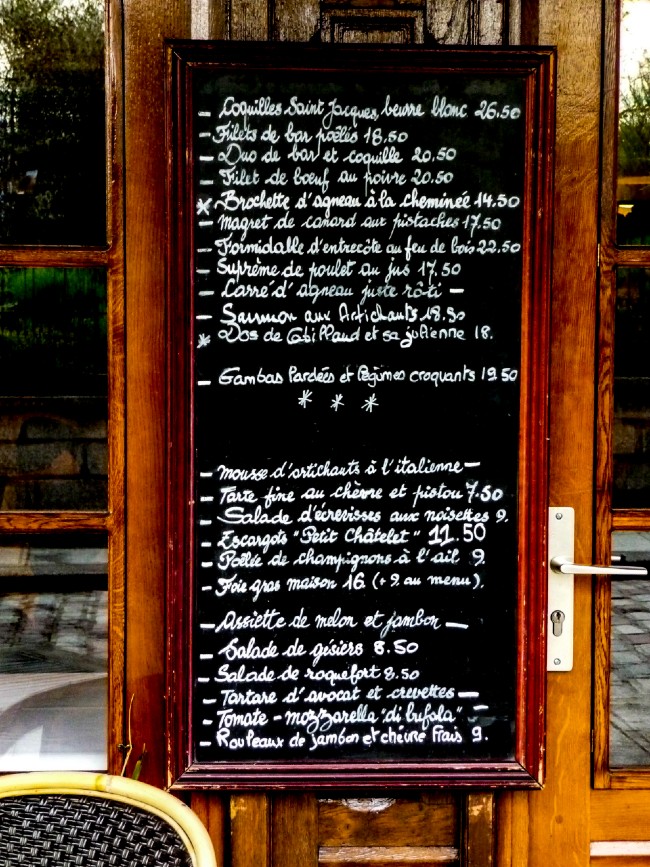 - Coquilles Saint Jacques beurre blanc 26.50
- Filets de bar poêlés 18.50
- Duo de bar et coquille 20.50
- Filet de bœuf au poivre 20.50
* Brochette d'agneau à la cheminée 14.50
- Magret de canard aux pistaches 17.50
- Formidable d'entrecôte au feu de bois 22.50
- Suprême de poulet au jus 17.50
- Carré d'agneau juste rôti -
- Saumon aux Artichauts 18.50
* Dos de Cabillaud et sa julienne 18.
- Gambas lardées et légumes croquants 19.50
* * *
- Mousse d'artichauts à l'italienne -
- Tarte fine au chèvre et pistou 7.50
- Salade d'écrevisses aux noisettes 9.
- Escargots "Petit Châtelet" 11.50
- Poêlée de champignons à l'ail 9.
- Foie gras maison 16 (+ 9. au menu).
- Assiette de melon et jambon -
- Salade de gésiers 8.50
- Salade de roquefort 8.50
- Tartare d'avocat et crevettes -
- Tomate - mozzarella "di bufola" -
- Rouleaux de jambon et chèvre frais 9.